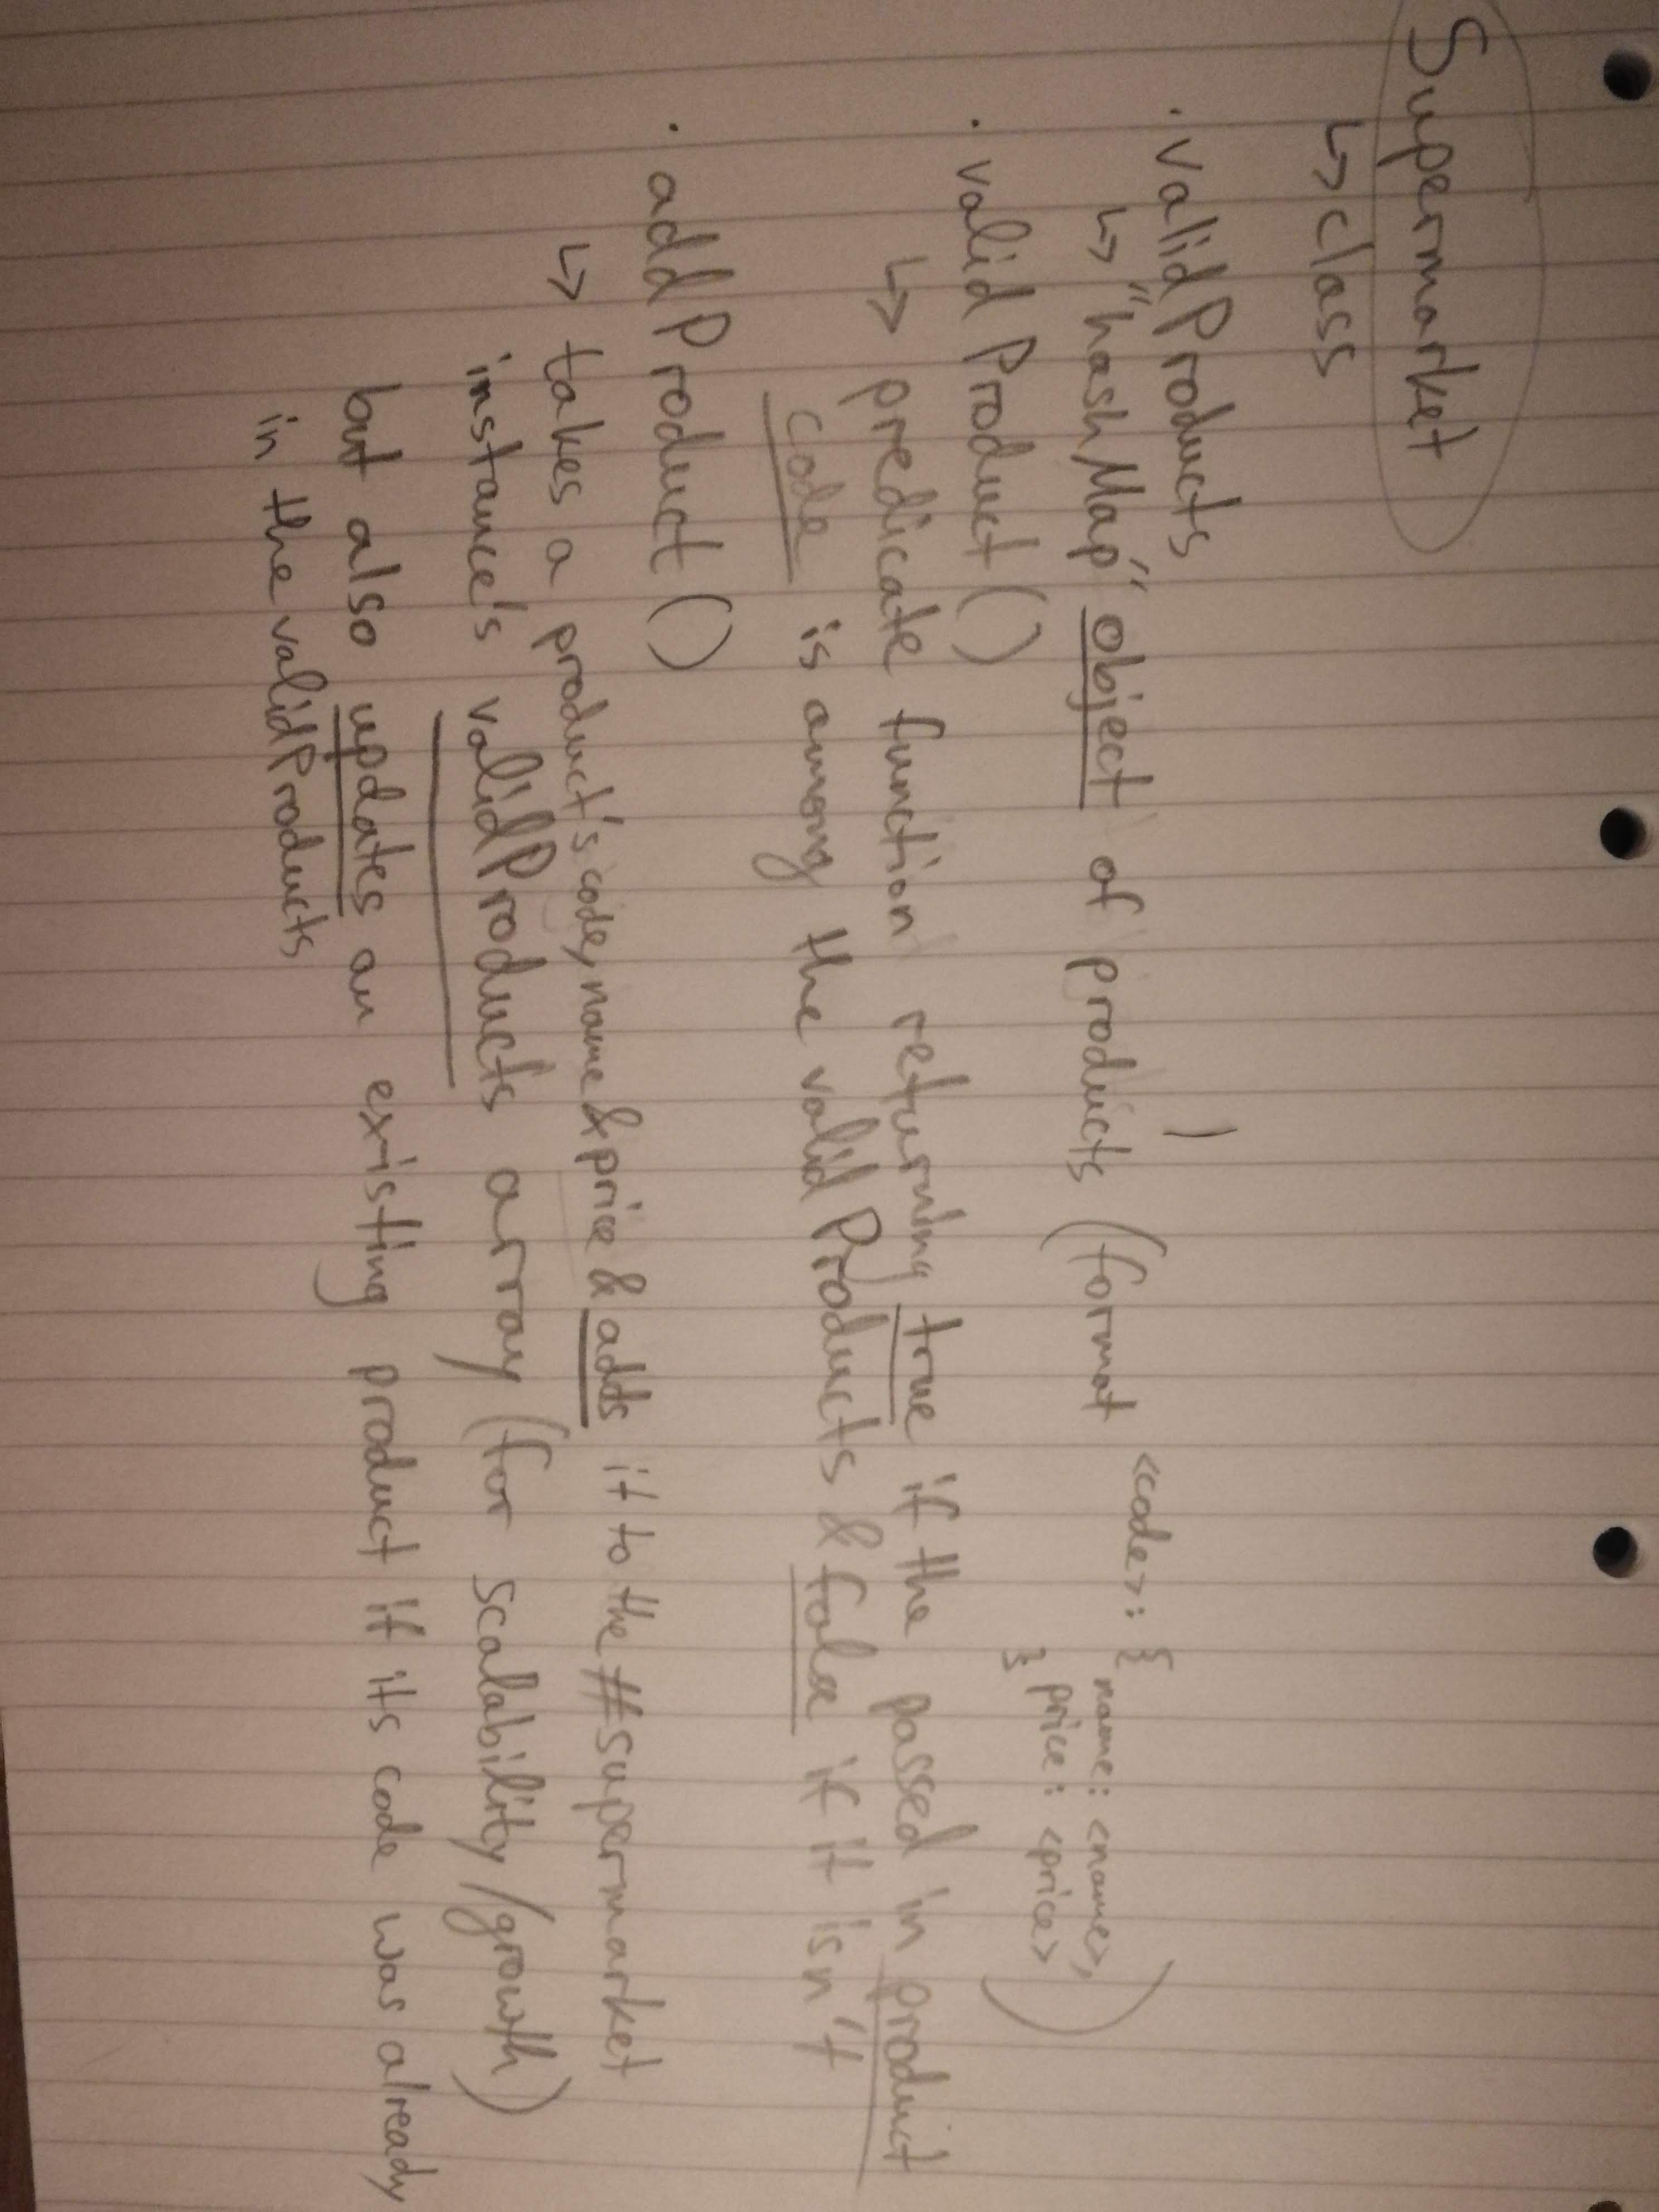 Supermarket
↳ class
· validProducts
↳ "hashMap" object of products (format <code>: {
name: <name>,
price: <price>
})
· validProduct()
↳ predicate function returning true if the passed in product
code is among the validProducts & false if it isn't
· addProduct()
↳ takes a product's code, name & price & adds it to the #supermarket
instance's validProducts array (for scalability/growth)
but also updates an existing product if its code was already
in the validProducts